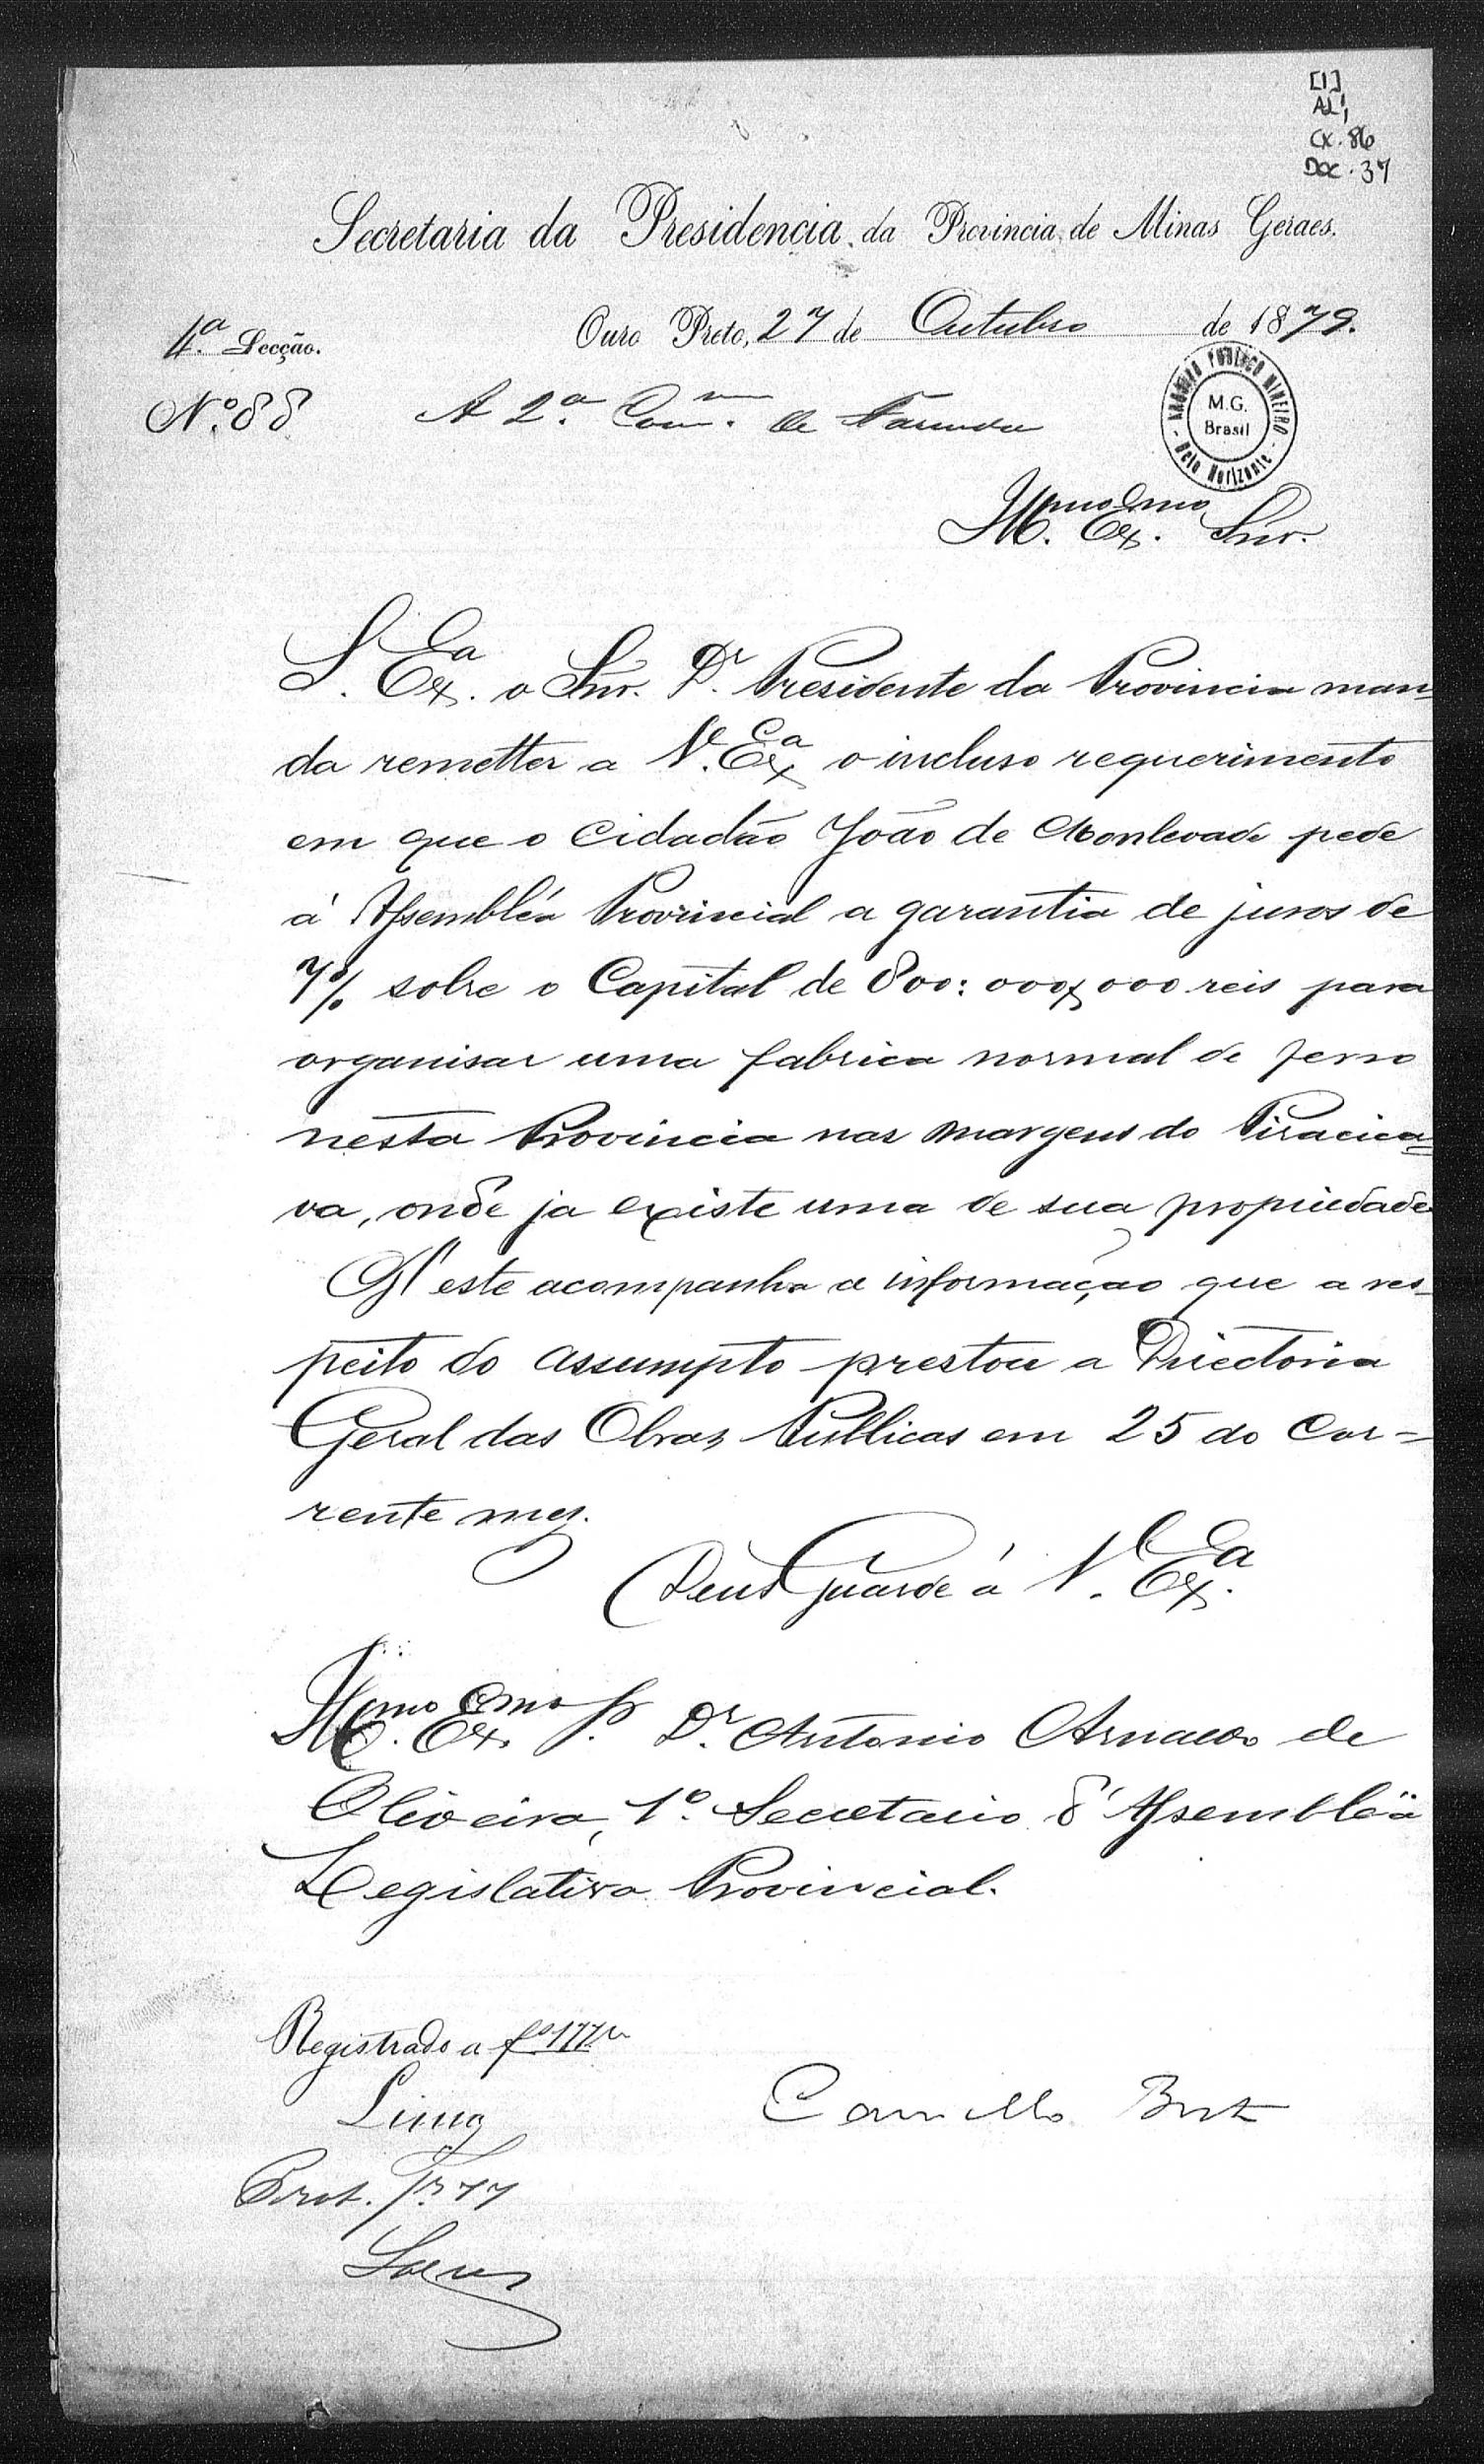 [1]
AL1,
CX. 86
DOC. 37
Secretaria da Presidencia da Provincia de Minas Geraes.
4ª Secção.
Ouro Preto, 27 de Outubro de 1879.
Nº 88
A 2ª Comm. de Fazenda
ARCHIVO PUBLICO MINEIRO
M.G.
Brasil
Belo Horizonte
Illmo. Exmo. Snr.
S. Exa. o Snr. Dr. Presidente da Provincia man=
da remetter a V. Exa. o incluso requerimento
em que o Cidadão João de Monlevade pede
á Assembléa Provincial a garantia de juros de
7% sobre o Capital de 800:000$000 reis para
organisar uma fabrica normal de ferro
nesta Provincia nas margens do Piracica=
va, onde ja existe uma de sua propriedade
N'este acompanha a informação que a res-
peito do assumpto prestou a Directoria
Geral das Obras Publicas em 25 do Cor=
rente mez.
Deus Guarde á V. Exa.
Illmo. Exmo. Sr. Dr. Antonio Arnaldo de
Oliveira, 1º Secretario d'Assembléa
Legislativa Provincial.
Registrado a fs 177
Lima
Camillo Brit
Prot. 77